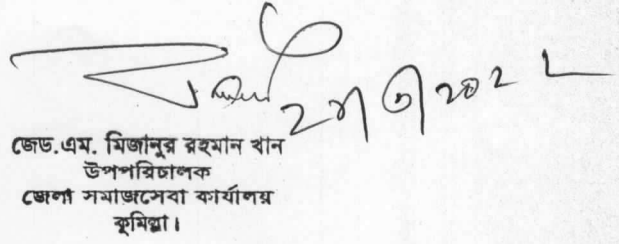 জেড.এম. মিজানুর রহমান খান
উপপরিচালক
জেলা সমাজসেবা কার্যালয়
কুমিল্লা।